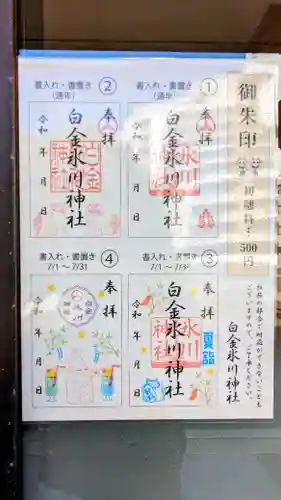 御朱印
初穂料：500円
社務の都合で対応ができないことも
ございますので、ご了承ください。
白金氷川神社
書入れ・書置き ①
（通年）
奉拝
白金氷川神社
令和 年 月 日
書入れ・書置き ②
（通年）
奉拝
白金氷川神社
令和 年 月 日
書入れ・書置き ③
7/1～7/31
奉拝
白金氷川神社
夏詣
令和 年 月 日
書入れ・書置き ④
7/1～7/31
奉拝
令和 年 月 日
夏詣